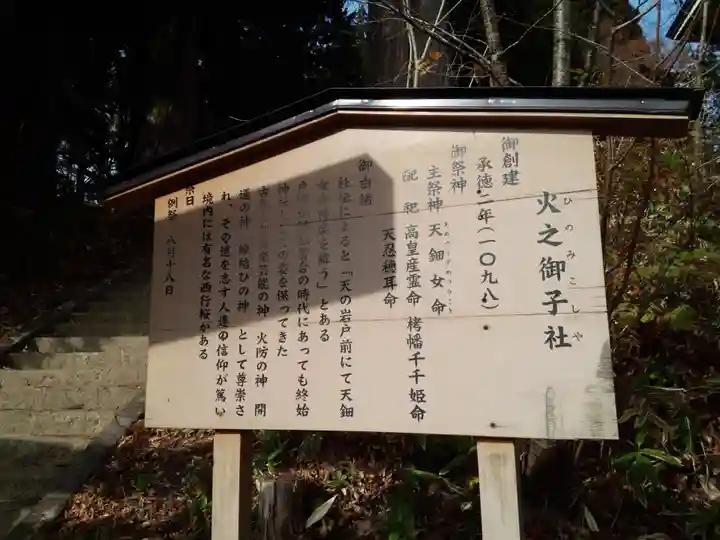 火之御子社
ひのみこしや
御創建
承徳二年(一〇九八)
御祭神
主祭神 天鈿女命
あめのうづめのみこと
配祀 高皇産霊命 栲幡千千姫命
天忍穂耳命
御由緒
社伝によると「天の岩戸前にて天鈿
を舞う」とある
の時代にあっても終始
の姿を保ってきた
芸能の神 火防の神 開
運の神 縁結びの神 として尊崇さ
れ、その道を志す人達の信仰が篤い
境内には有名な西行桜がある
祭日
例祭 八月十八日